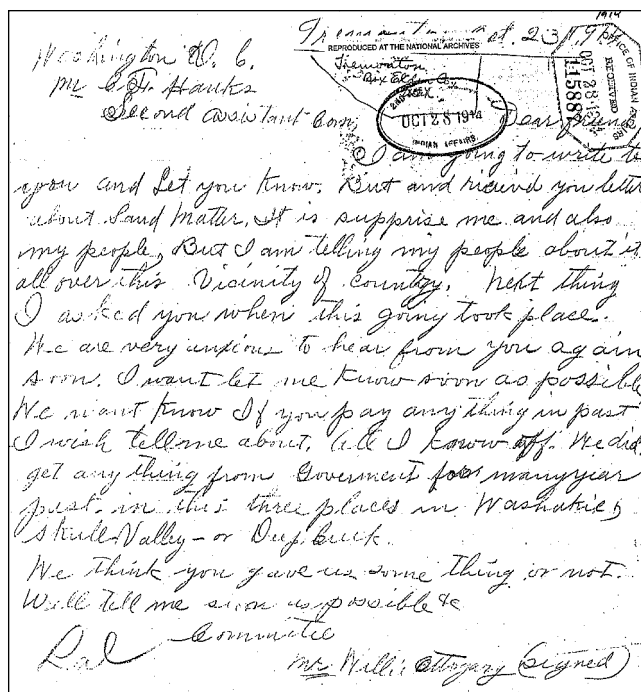 1914
Tremonton Oct. 23, 19
REPRODUCED AT THE NATIONAL ARCHIVES
Washington D. C.
Tremonton
Box Elder Co.
Mr C F. Hauks
Second assitant Com
OFFICE OF INDIAN AFFAIRS
RECEIVED
OCT 28 1914
115887
OCT 28 1914
INDIAN AFFAIRS
Dear friend
I am going to write to
you and Let you Know. But and riceivd you letter
about Land Matter. It is supprise me and also
my people, But I am telling my people about it
all over this Vicinity of country. Next thing
I asked you when this going took place.
We are very anxious to hear from you again
soon. I want let me Know soon as possible
We want Know If you pay any thing in past
I wish tell me about. All I know off. We did
get any thing from Goverment for many year
past. in this three places in Washakie,
Skull Valley - or Deep Creek.
We think you gave us some thing or not.
Will tell me soon as possible &c
Committee
Mr Willie Ottogary (Signed)